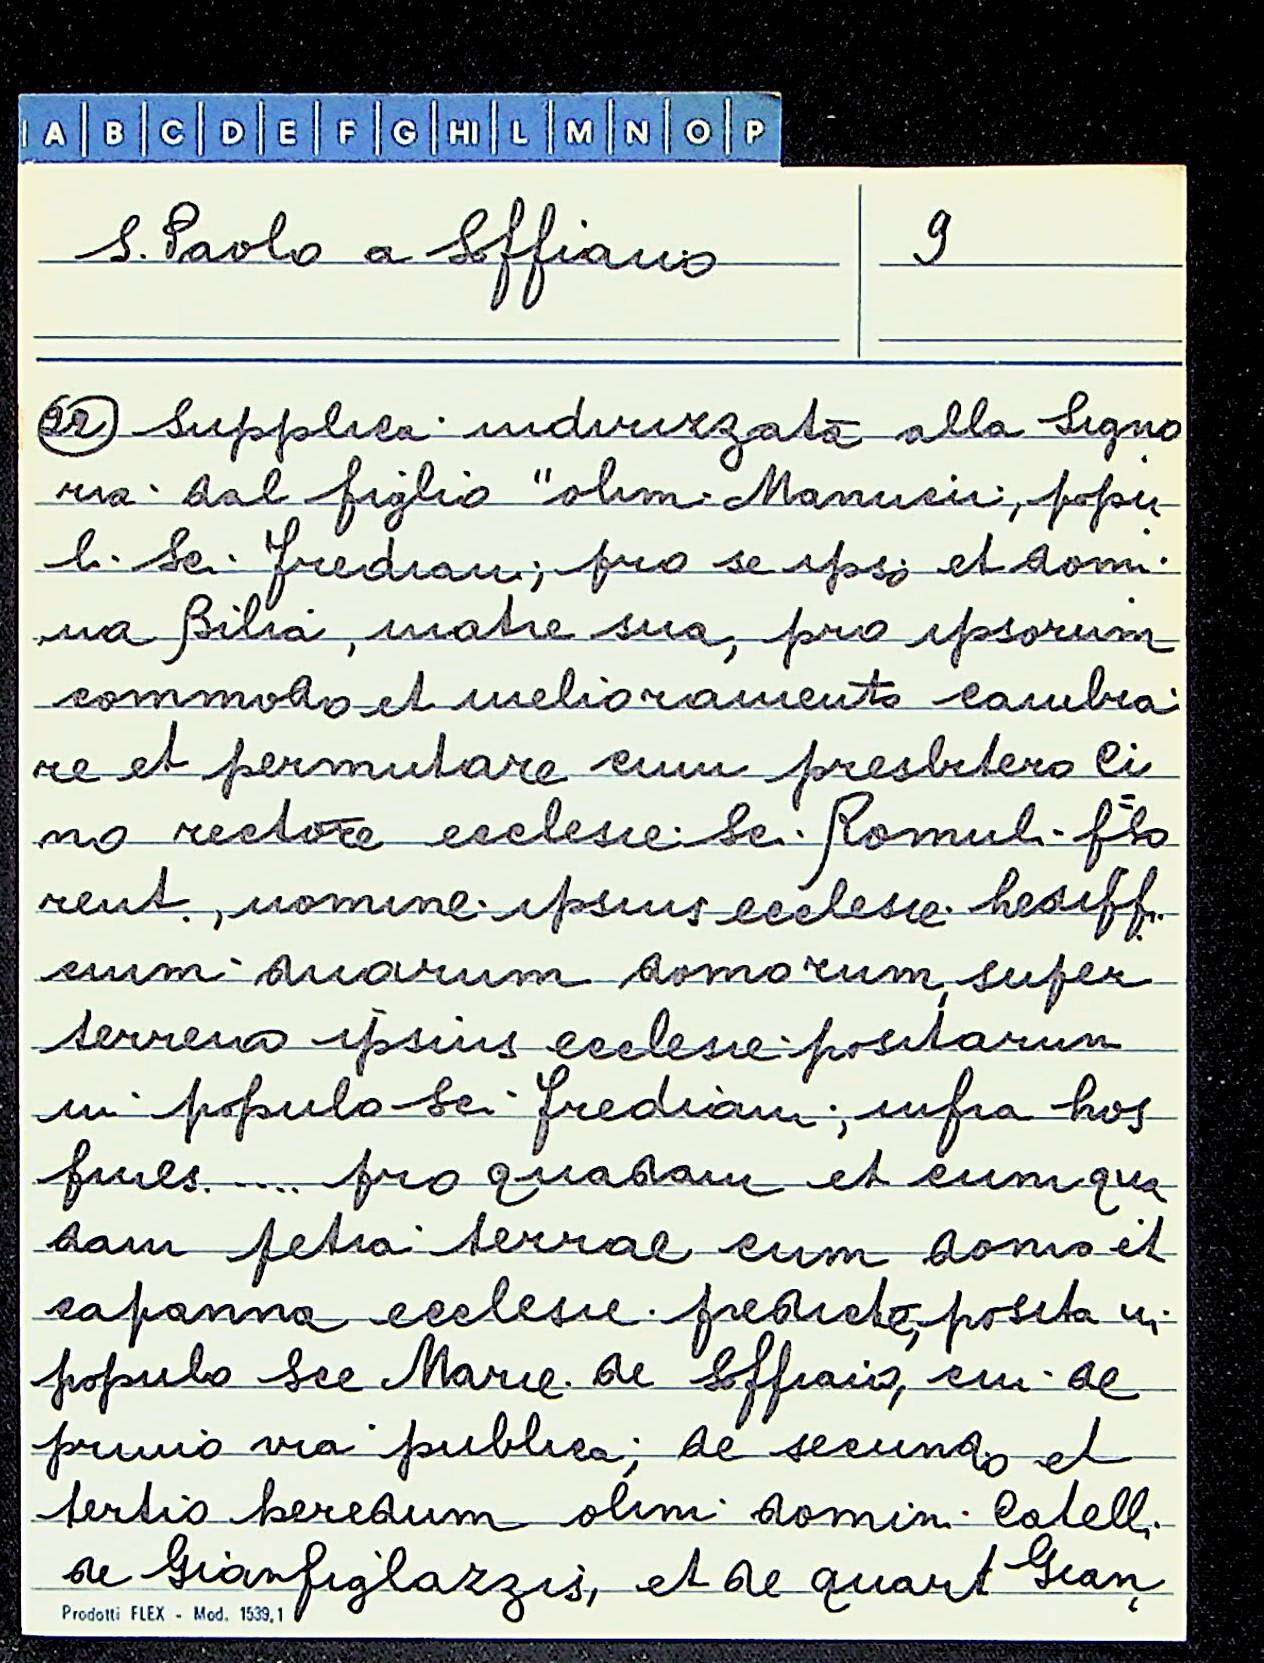 A B C D E F G HI L M N O P
S. Paolo a Soffiano 9
22 Supplica indirizzata alla Signo
ria dal figlio "olim Manucii, popu
li Sci Frediani, pro se ipso et domi
na Bilia, matre sua, pro ipsorum
commodo et melioramento cambia
re et permutare cum presbitero Ci
no rectore ecclesie Sci Romuli flo
rent., nomine ipsius ecclesie hediffi
cium duarum domorum, super
terreno ipsius ecclesie positarum
in populo Sci Frediani, infra hos
fines..... pro quadam et cum qua
dam petia terrae cum domo et
capanna ecclesie predicte, posita in
populo Sce Marie de Soffiano, cui de
primo via publica; de secundo et
tertio heredum olim domini Catelli
de Gianfigliazzis, et de quart Gian
Prodotti FLEX - Mod. 1539,1